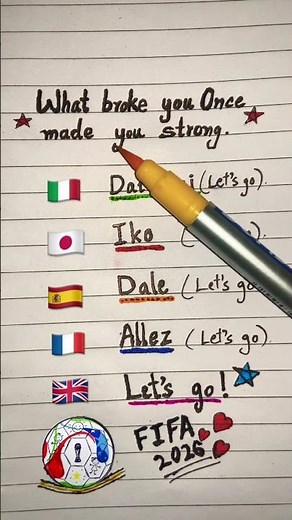 What broke you Once
made you strong.
(Let's go).
Iko
Dale (Let's go
Allez (Let's go).
Let's go!
FIFA
2026